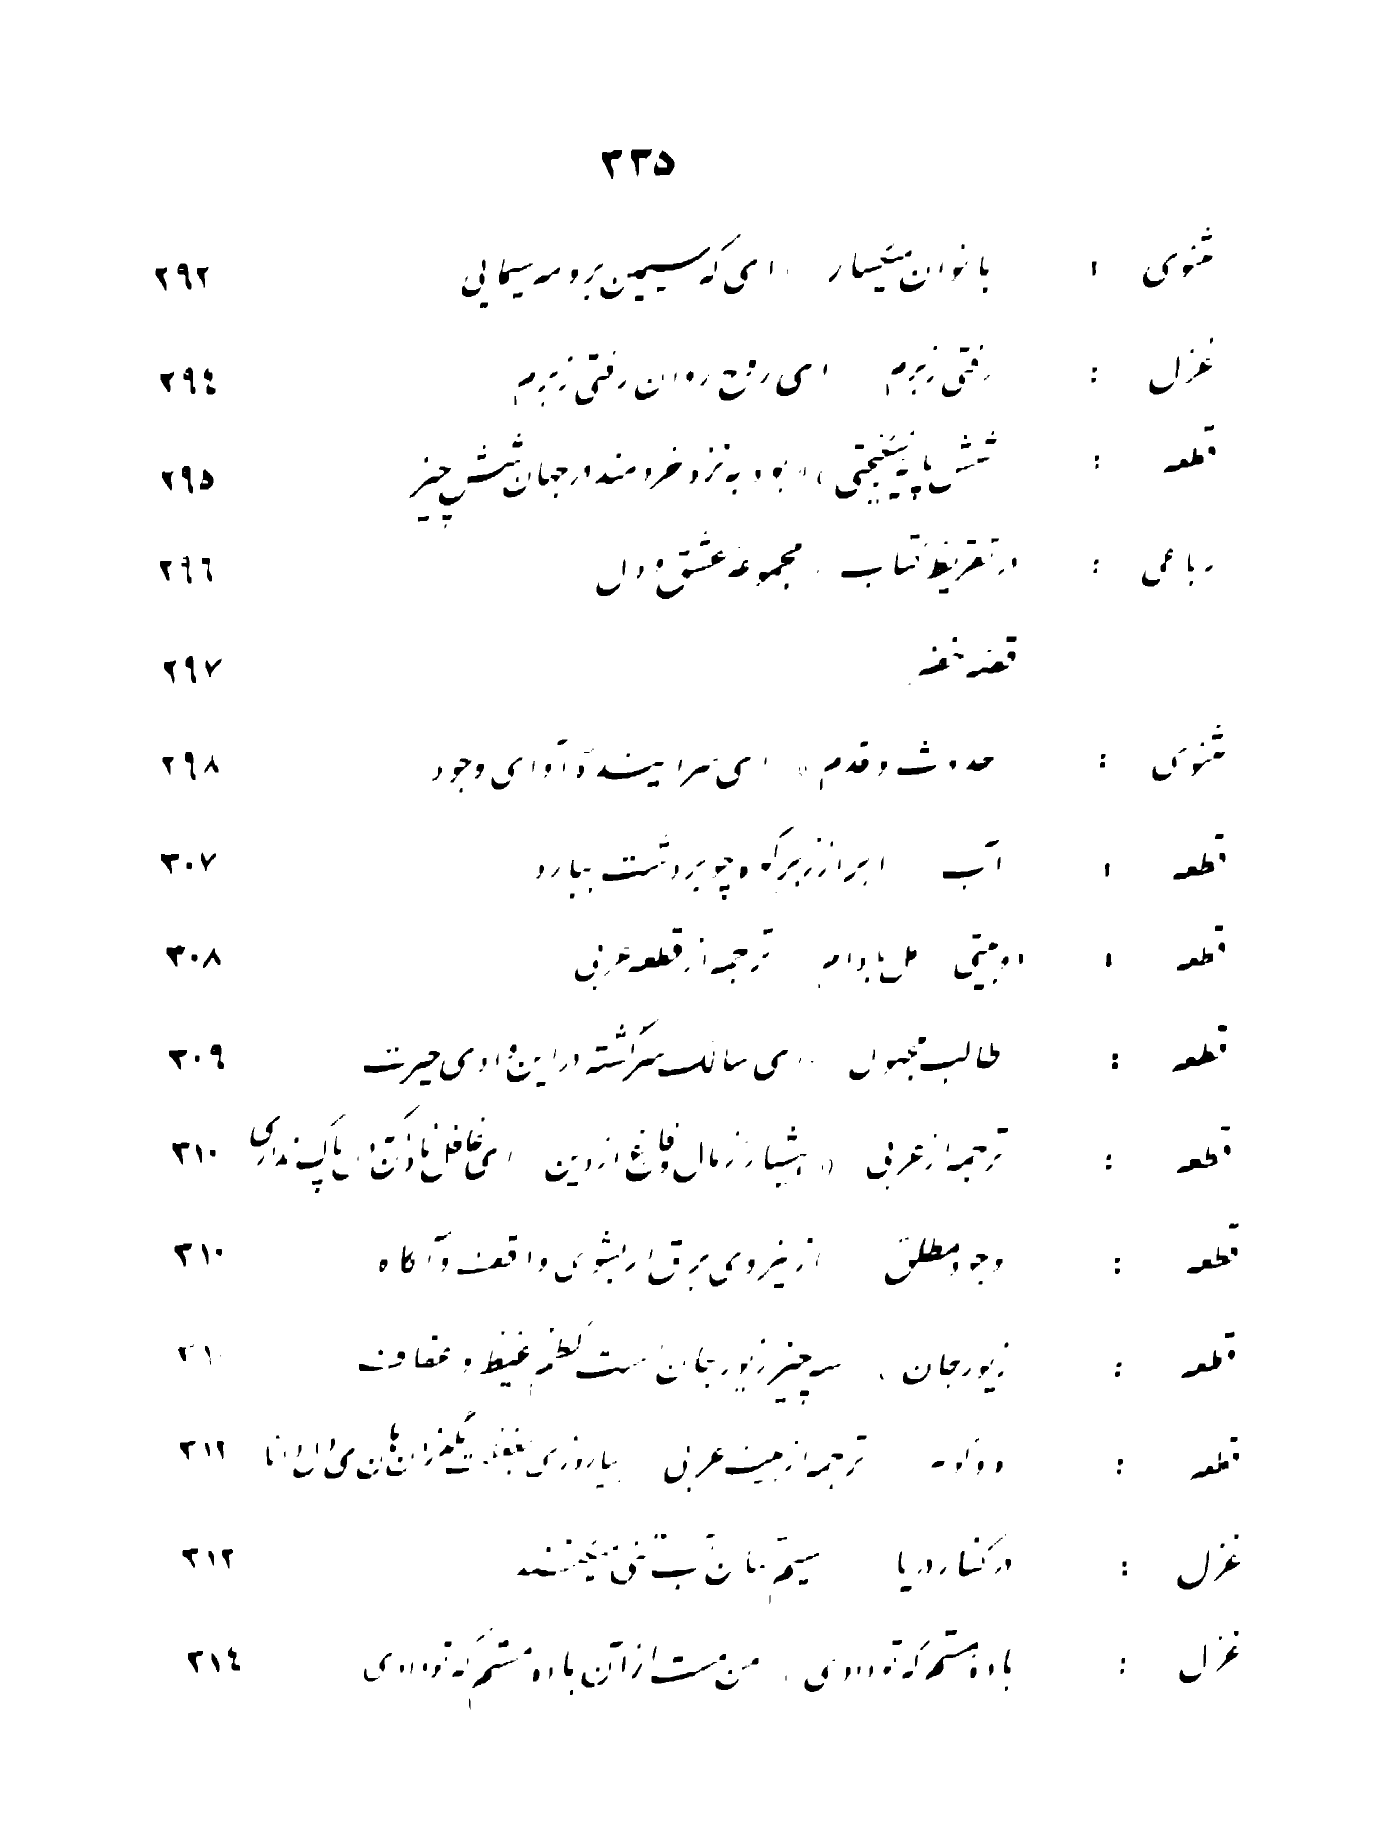 ۳۳۵
مثنوی : بانوان میگسار ای که سیمین بر و مه سیمایی ۲۹۲
غزل : رفتی ز برم ای روح روان رفتی ز برم ۲۹٤
قطعه : شش پایه نیکبختی بود به نزد خردمند در جهان شش چیز ۲۹۵
رباعی : در تقریظ کتاب مجموعه عشق و دل ۲۹٦
۲۹۷
مثنوی : حدوث و قدم ای سراینده آوای وجود ۲۹۸
قطعه : آب ابر از زبر که چو بر دشت ببارد ۳۰۷
قطعه : دوبیتی ترجمه از قطعه عربی ۳۰۸
قطعه : طالب مجهول ای سالک سرگشته در این وادی حیرت ۳۰۹
قطعه : ترجمه از عربی هشیار ز مال و فارغ از دین ای غافل ۳۱۰
قطعه : وجود مطلق از نیروی برق ار بشوی واقف و آگاه ۳۱۰
قطعه : زیور جان سه چیز زیور جان است کظم غیظ و عفاف ۳۱
قطعه : ترجمه از بیت عربی ۳۱۲
غزل : در کنار دریا ۳۱۳
غزل : باده مستم که تو دادی من مست از آن باده مستم که تو دادی ۳۱٤